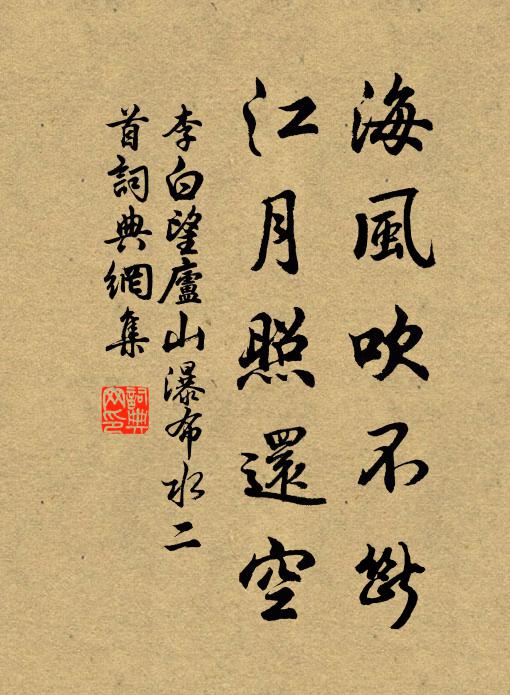 海風吹不斷
江月照還空
李白望廬山瀑布水二
首詞典網集
詞典網印